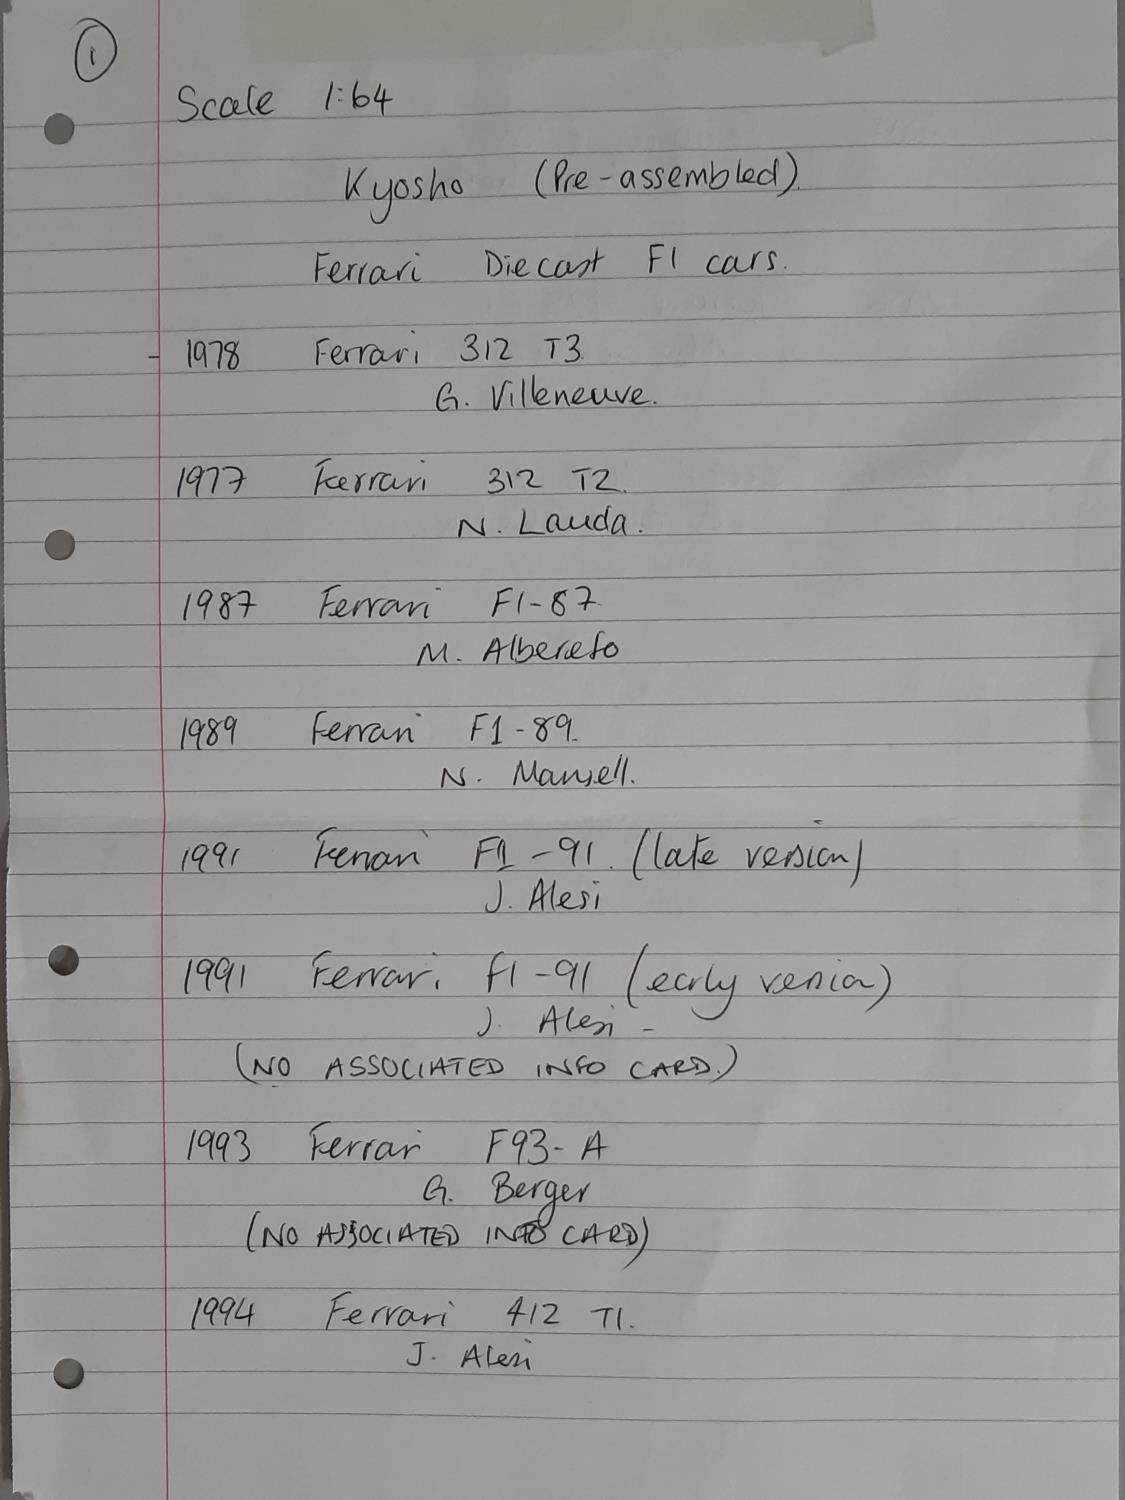 1
Scale 1:64
Kyosho (Pre-assembled)
Ferrari Diecast F1 cars.
- 1978 Ferrari 312 T3.
G. Villeneuve.
1977 Ferrari 312 T2.
N. Lauda.
1987 Ferrari F1-87.
M. Albereto
1989 Ferrari F1-89.
N. Mansell.
1991 Ferrari F1-91. (late version)
J. Alesi
1991 Ferrari F1-91 (early version)
J. Alesi -
(NO ASSOCIATED INFO CARD.)
1993 Ferrari F93-A
G. Berger
(NO ASSOCIATED INFO CARD)
1994 Ferrari 412 T1.
J. Alesi